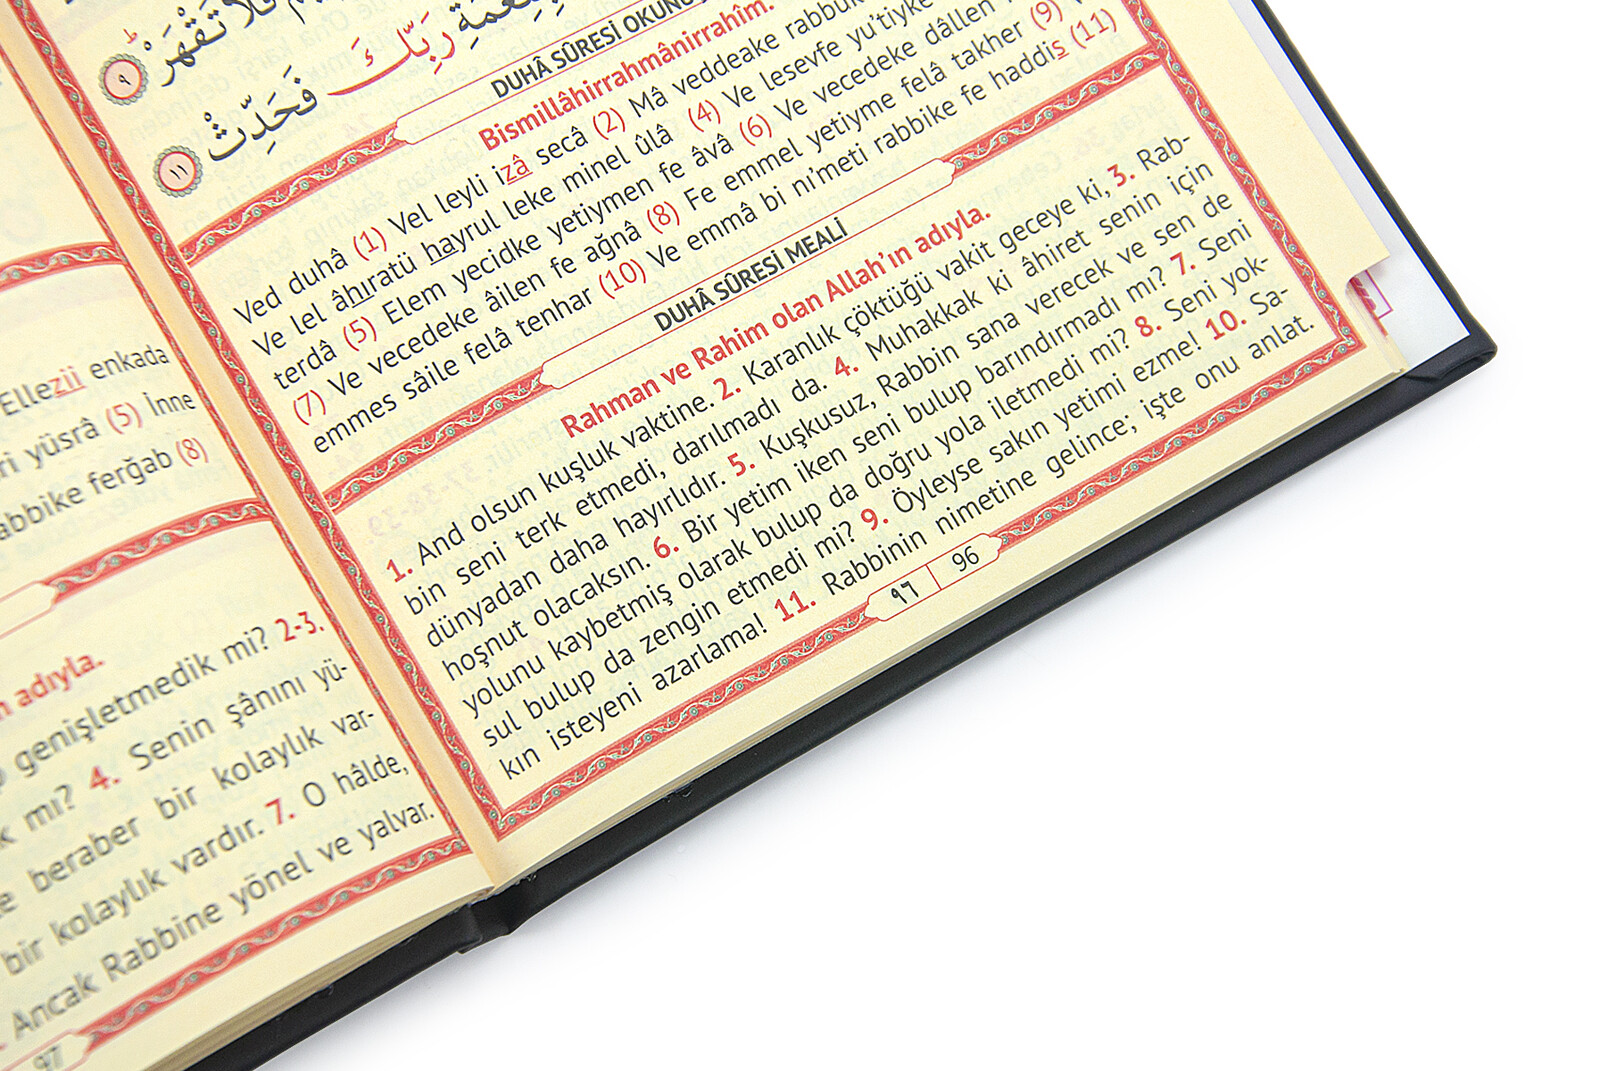 فَلَا تَقْهَرْ ٩
بِنِعْمَةِ رَبِّكَ فَحَدِّثْ ١١
DUHÂ SÛRESİ OKUNU
Bismillâhirrahmânirrahîm.
Ved duhâ (1) Vel leyli izâ secâ (2) Mâ veddeake rabbuk
Ve lel âhıratü hayrul leke minel ûlâ (4) Ve lesevfe yu'tiyke
terdâ (5) Elem yecidke yetiymen fe âvâ (6) Ve vecedeke dâllen
(7) Ve vecedeke âilen fe ağnâ (8) Fe emmel yetiyme felâ takher (9)
emmes sâile felâ tenhar (10) Ve emmâ bi nı'meti rabbike fe haddis (11)
DUHÂ SÛRESİ MEALİ
Rahman ve Rahim olan Allah'ın adıyla.
1. And olsun kuşluk vaktine. 2. Karanlık çöktüğü vakit geceye ki, 3. Rab-
bin seni terk etmedi, darılmadı da. 4. Muhakkak ki âhiret senin için
dünyadan daha hayırlıdır. 5. Kuşkusuz, Rabbin sana verecek ve sen de
hoşnut olacaksın. 6. Bir yetim iken seni bulup barındırmadı mı? 7. Seni
yolunu kaybetmiş olarak bulup da doğru yola iletmedi mi? 8. Seni yok-
sul bulup da zengin etmedi mi? 9. Öyleyse sakın yetimi ezme! 10. Sa-
kın isteyeni azarlama! 11. Rabbinin nimetine gelince; işte onu anlat.
٩٦ 96
Ellezii enkada
ri yüsrâ (5) İnne
abbike ferğab (8)
n adıyla.
genişletmedik mi? 2-3.
k mı? 4. Senin şânını yü-
e beraber bir kolaylık var-
bir kolaylık vardır. 7. O hâlde,
Ancak Rabbine yönel ve yalvar.
97